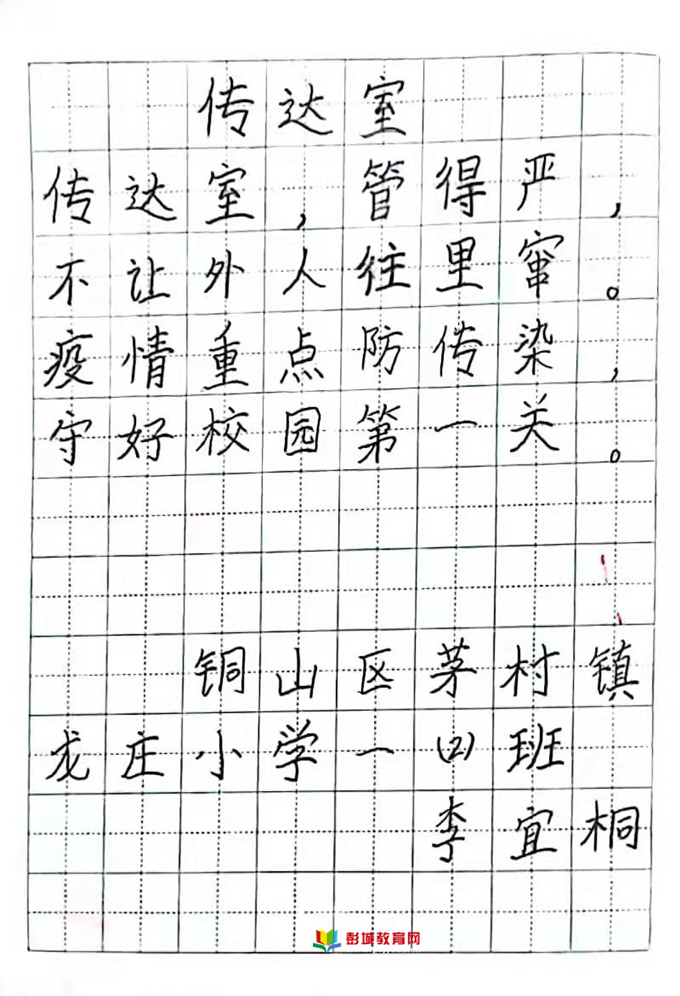 传达室
传达室，管得严，
不让外人往里窜。
疫情重点防传染，
守好校园第一关。
铜山区茅村镇
龙庄小学一(2)班
李宜桐
彭城教育网